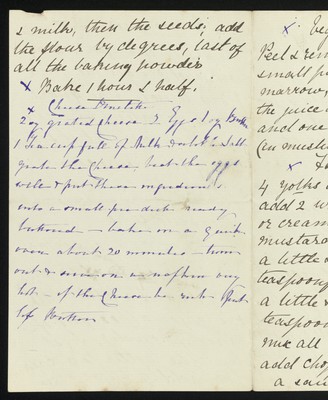 2 milk, then the seeds, add
the flour by degrees, last of
all the baking powder
x Bake 1 hour & half.
x Cheese
2 oz grated Cheese 2 Eggs 1 oz
1 tea cup full of Milk
grate the Cheese, beat the eggs
well & put these ingredients
into a small pie dish ready
buttered — bake in a quick
oven about 20 minutes — turn
out & serve on a napkin very
hot — if the Cheese be rich
of Butter
x
Peel &
small
marrow,
the juice
and one
x
4 yolks
add 2
or cream
mustard
a little
teaspoon
a little
teaspoon
mix all
add
a